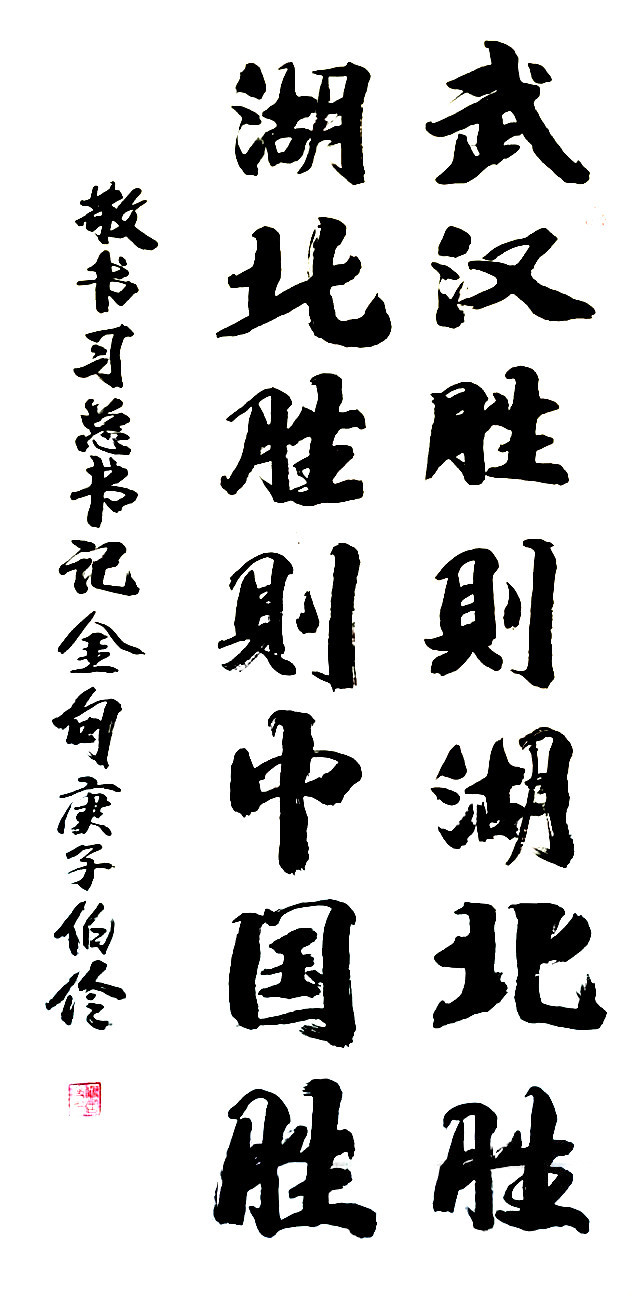 武汉胜則湖北胜
湖北胜則中国胜
敬书习总书记金句庚子伯伶